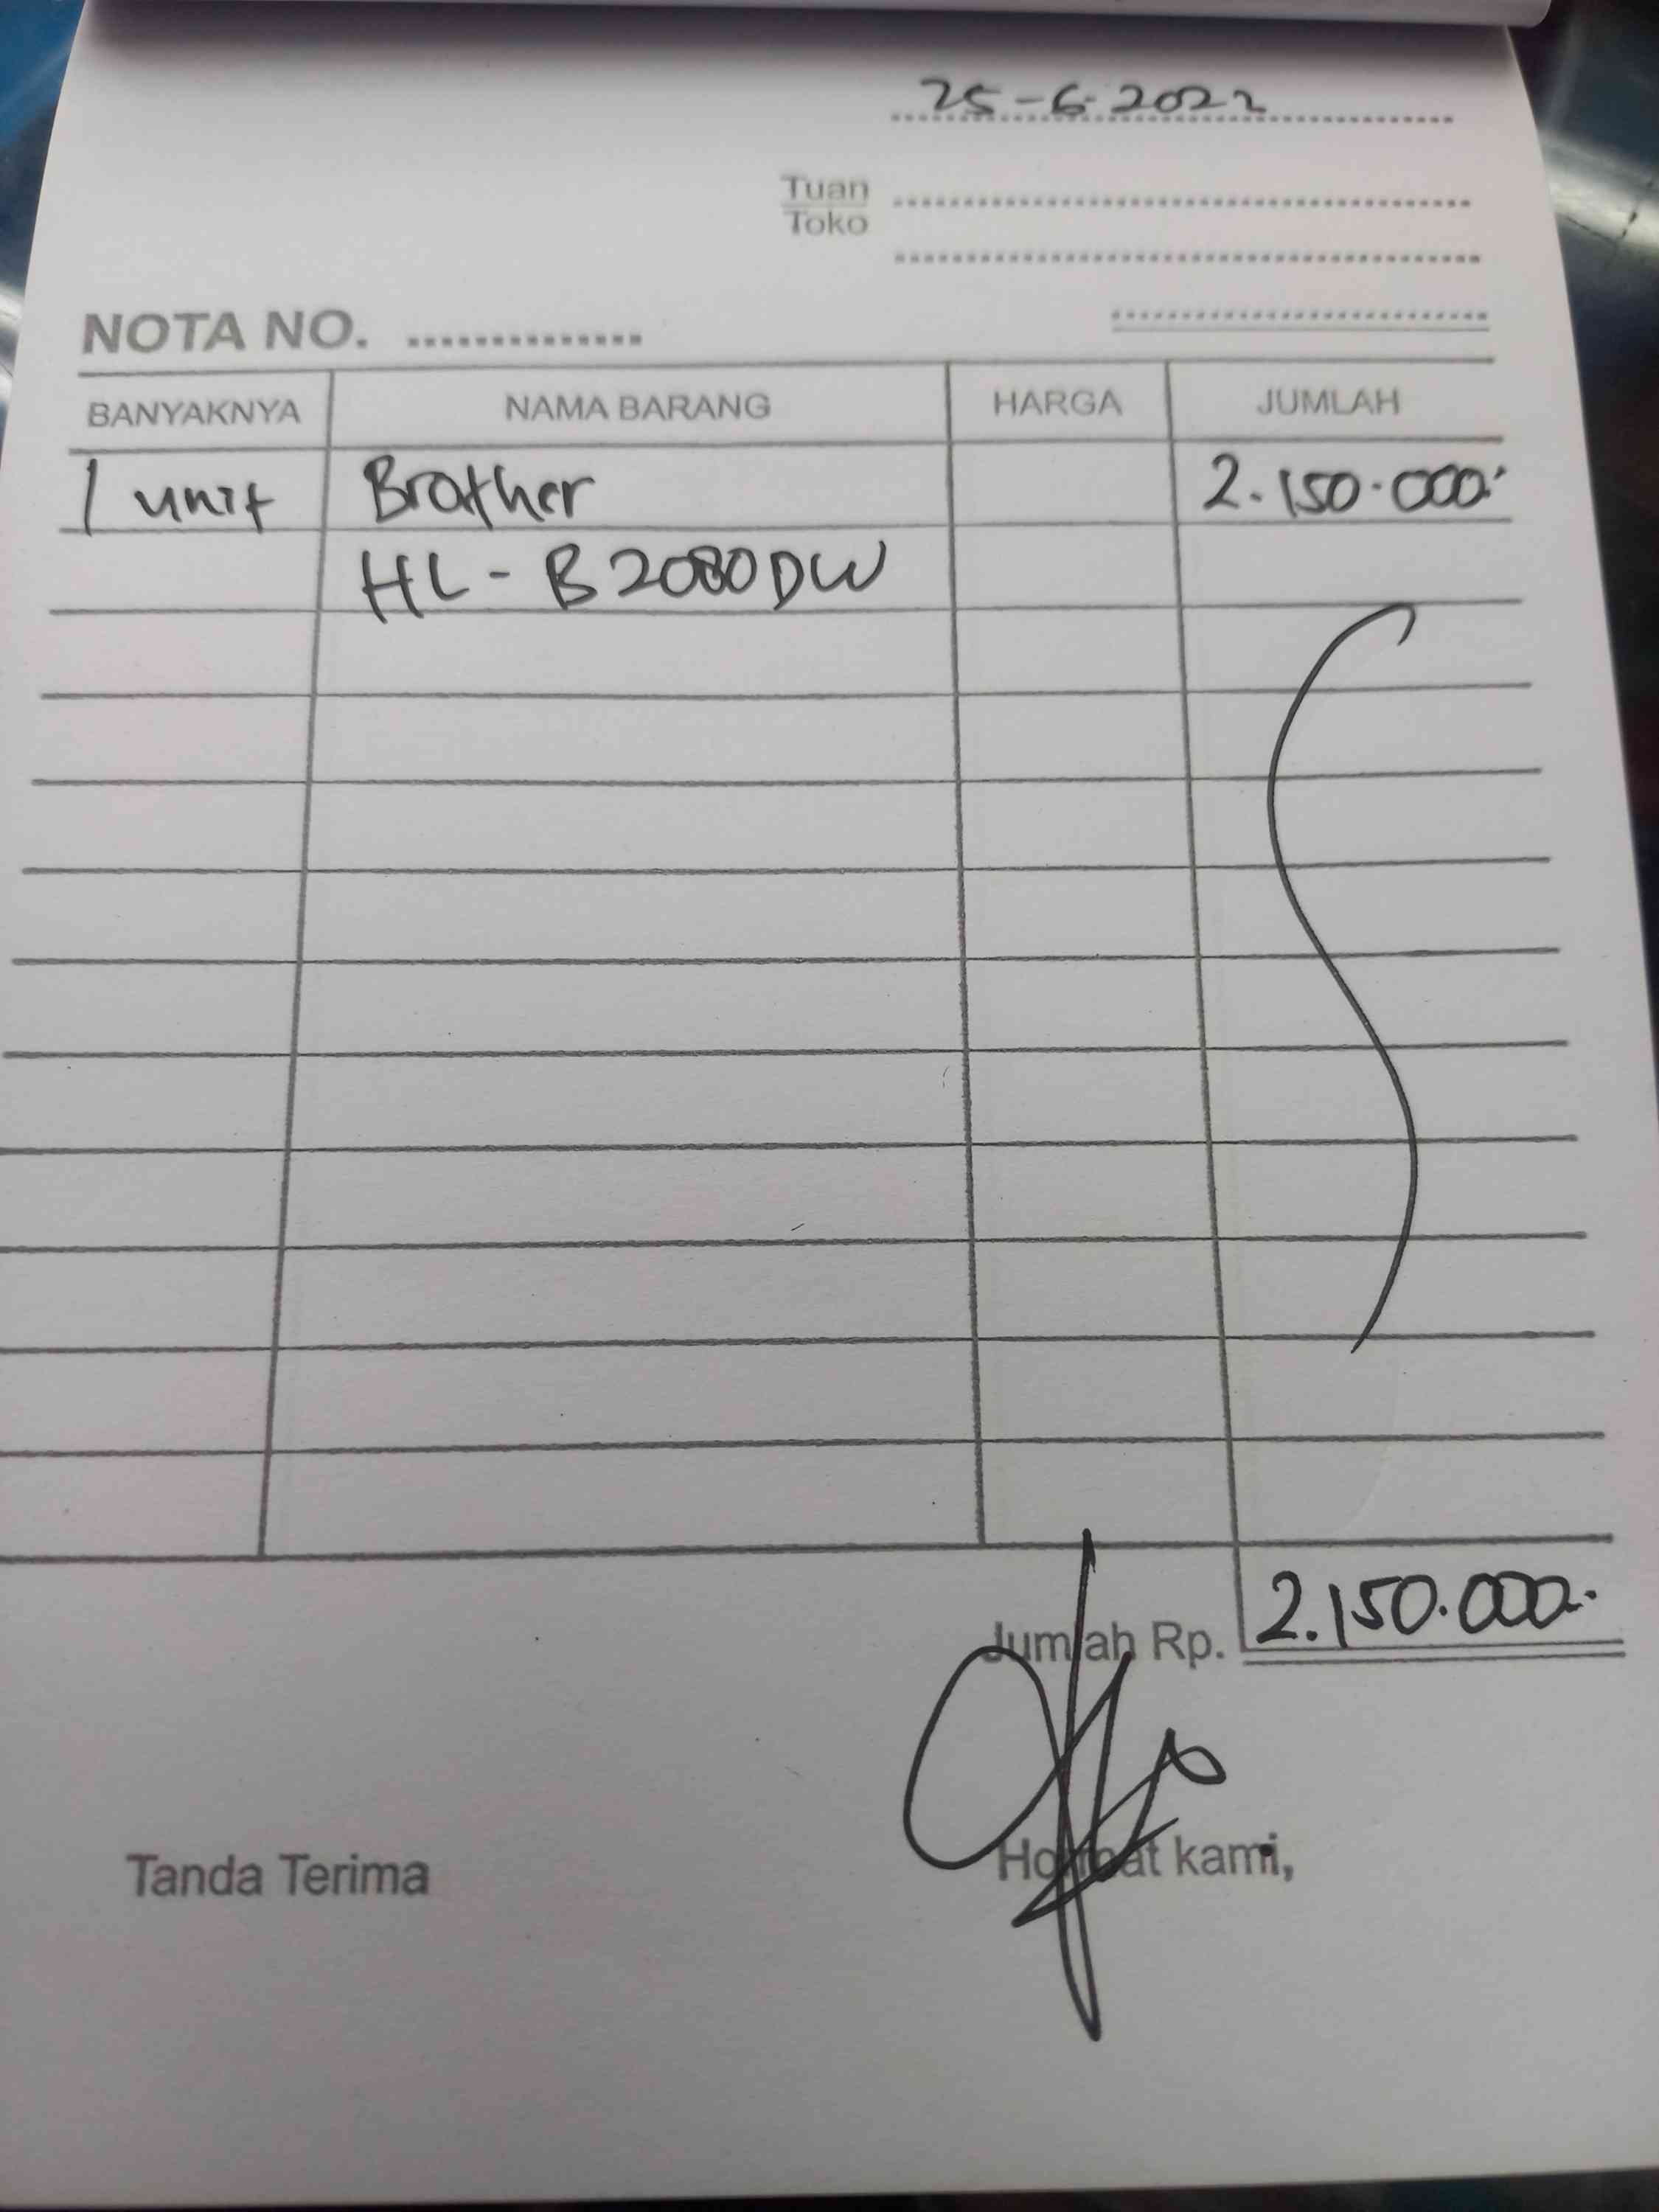 25-6-2022
Tuan
Toko
NOTA NO.
BANYAKNYA NAMA BARANG HARGA JUMLAH
1 unit Brother 2.150.000.
HL-B2080DW
Jumlah Rp. 2.150.000.
Tanda Terima Hormat kami,